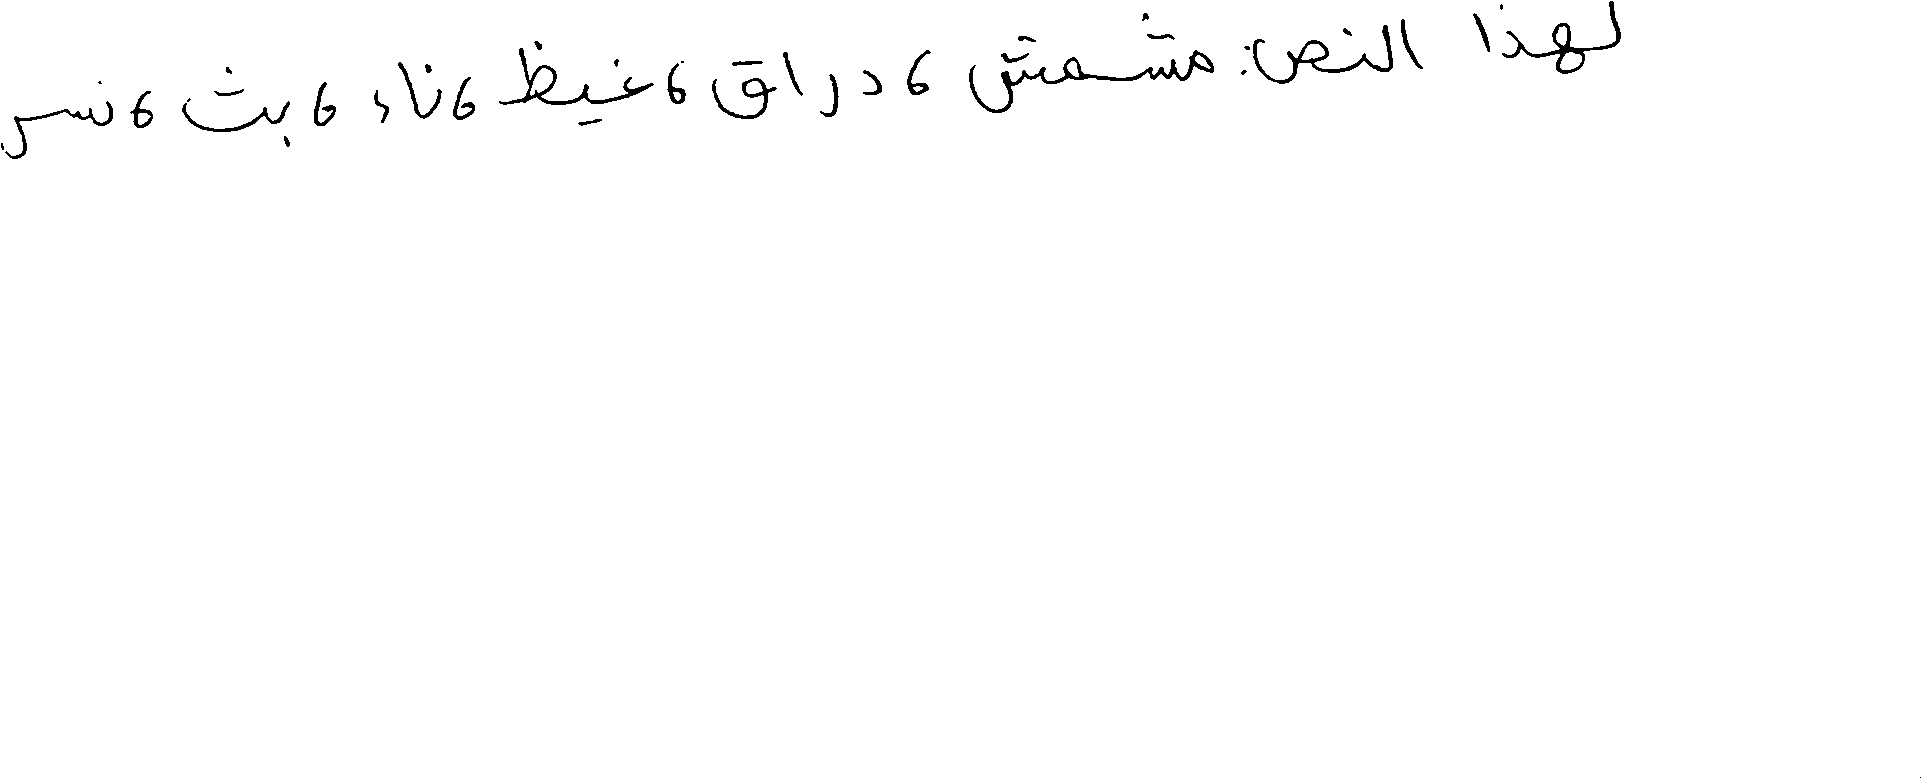 لهذا النص: مشمش ، دراق ، غيظ ، ناء ، بث ، نسر